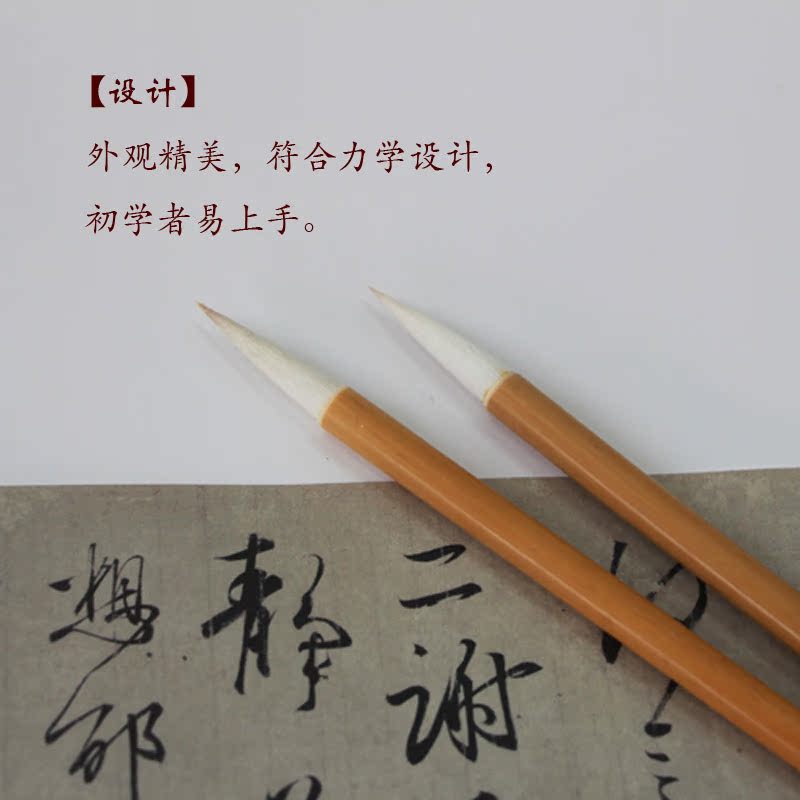 【设计】
外观精美，符合力学设计，
初学者易上手。
二谢
静
想邵